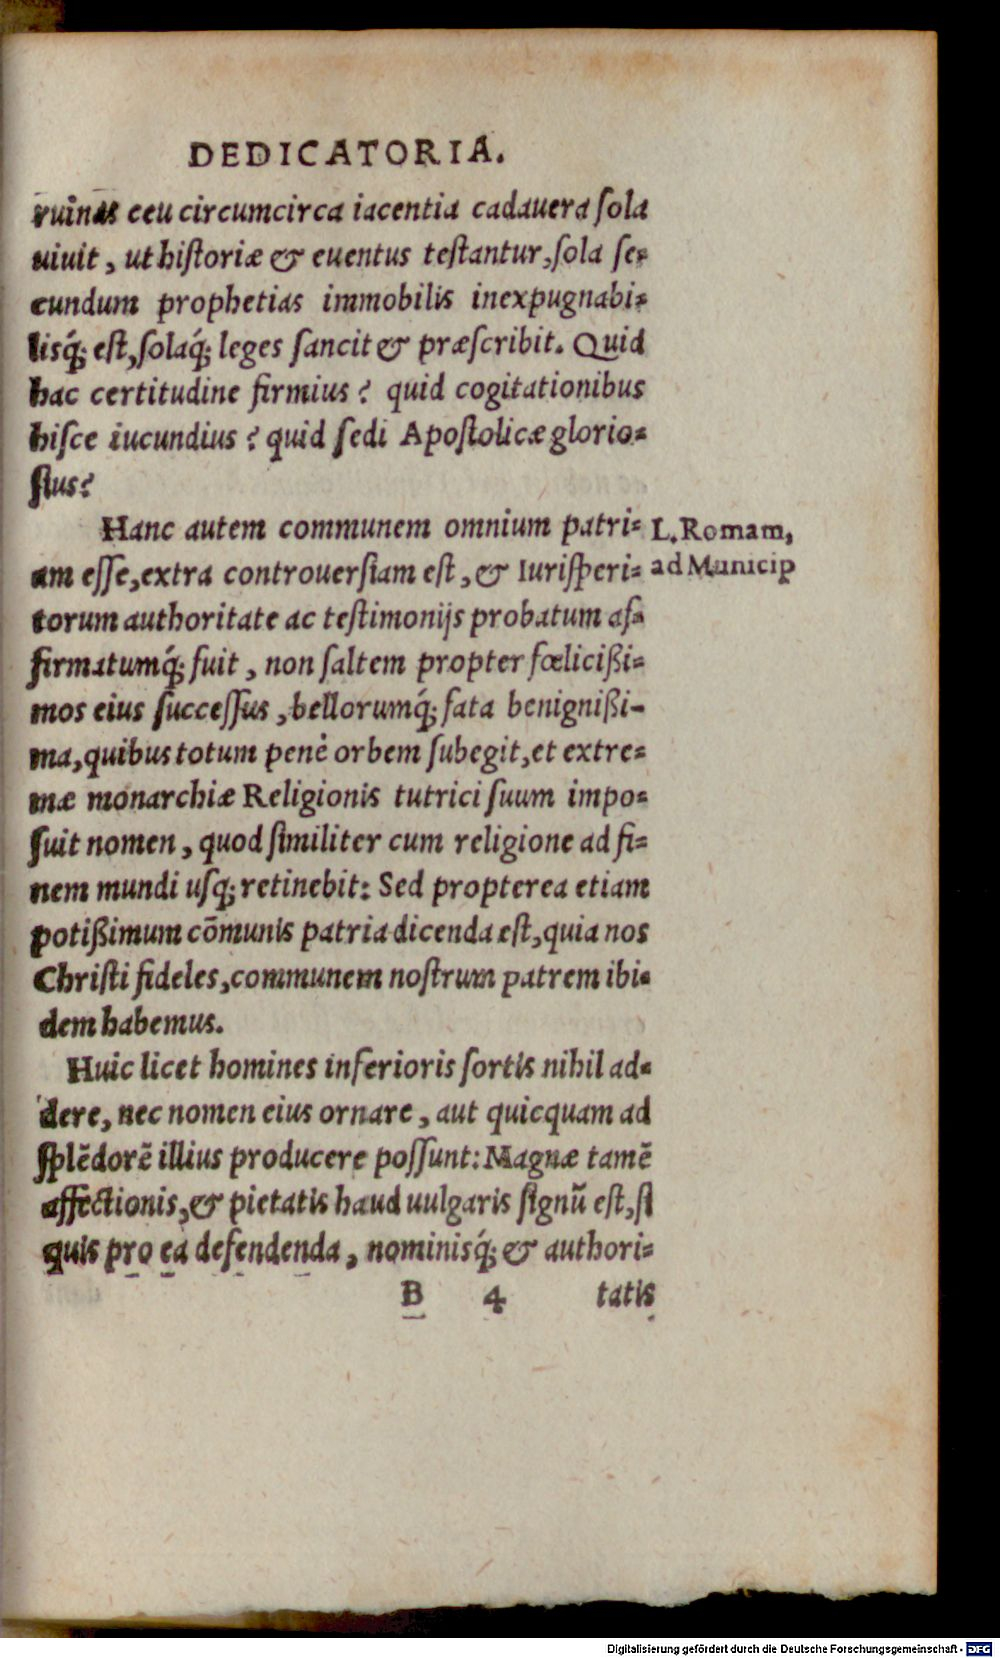 DEDICATORIA.
ruinas ceu circumcirca iacentia cadauera ſola
uiuit, ut hiſtoriæ & euentus teſtantur, ſola ſe-
cundum prophetias immobilis inexpugnabi-
lisq́; eſt, ſolaq́; leges ſancit & præſcribit. Quid
hac certitudine firmius? quid cogitationibus
hiſce iucundius? quid ſedi Apoſtolicæ glorio-
ſius?
Hanc autem communem omnium patri-
am eſſe, extra controuerſiam eſt, & Iuriſperi-
torum authoritate ac teſtimonijs probatum aſ-
firmatumq́; fuit, non ſaltem propter fœlicißi-
mos eius ſucceſſus, bellorumq́; fata benignißi-
ma, quibus totum penè orbem ſubegit, et extre-
mæ monarchiæ Religionis tutrici ſuum impo-
ſuit nomen, quod ſimiliter cum religione ad fi-
nem mundi uſq; retinebit: Sed propterea etiam
potißimum cōmunis patria dicenda eſt, quia nos
Chriſti fideles, communem noſtrum patrem ibi-
dem habemus.
Huic licet homines inferioris ſortis nihil ad-
dere, nec nomen eius ornare, aut quicquam ad
ſplēdorē illius producere poſſunt: Magnæ tamē
affectionis, & pietatis haud uulgaris ſignū eſt, ſi
quis pro ea defendenda, nominisq́; & authori-
B 4 tatis
L. Romam,
ad Municip
Digitalisierung gefördert durch die Deutsche Forschungsgemeinschaft - DFG